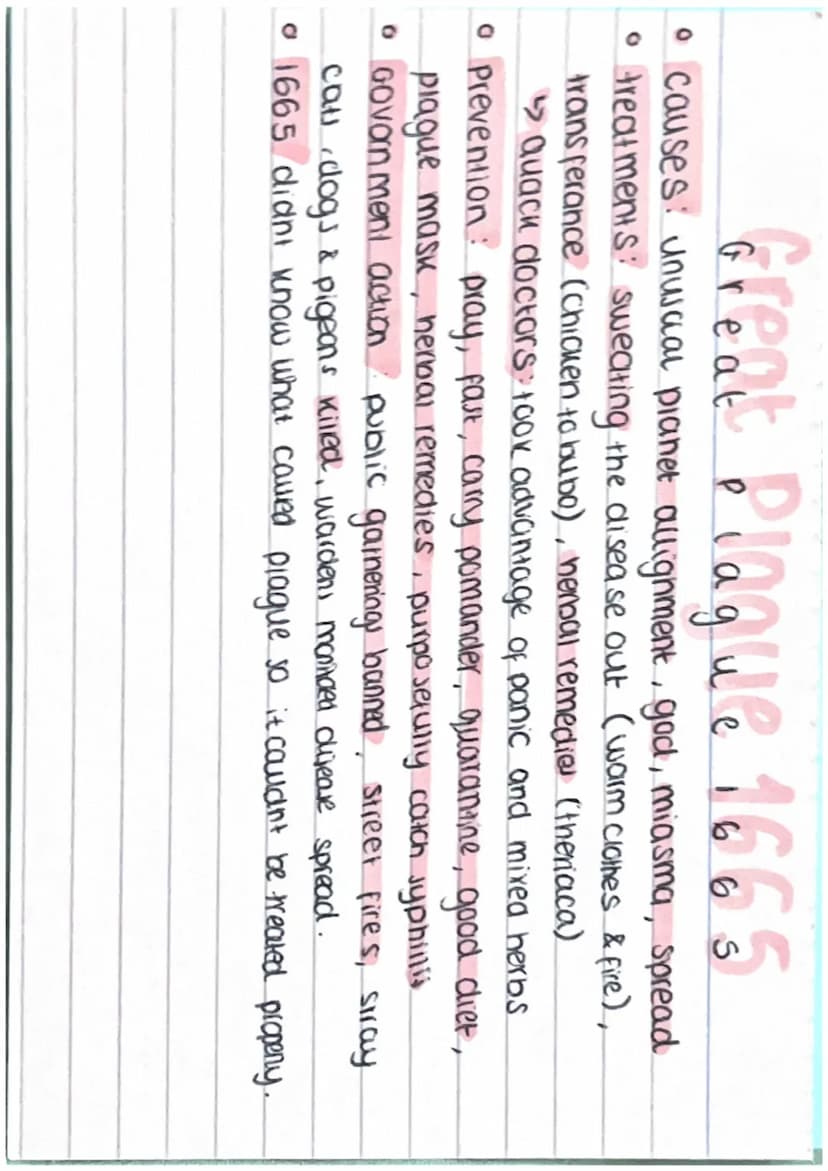 Great Plague 1665
Great Plague 1665
• causes: unusual planet allignment, god, miasma, spread
• treatments: sweating the disease out (warm clothes & fire),
transferance (chicken to bubo), herbal remedies (theriaca)
↳ quack doctors: took advantage of panic and mixed herbs
• prevention: pray, fast, carry pomander, quarantine, good diet,
plague mask, herbal remedies, purposefully catch syphilis
• Government action: public gatherings banned, street fires, stray
cats, dogs & pigeons killed, wardens monitored disease spread.
• 1665 didnt know what caused plague so it couldnt be treated properly.